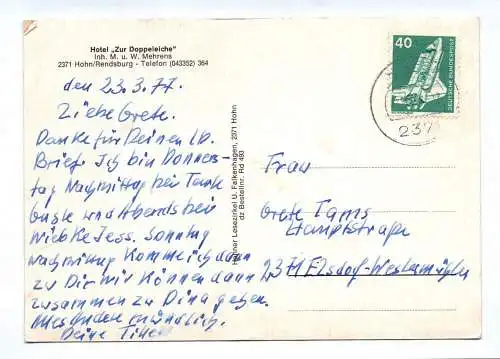 Hotel „Zur Doppeleiche"
Inh. M. u. W. Mehrens
2371 Hohn/Rendsburg - Telefon (043352) 364
den 23.3.77
Liebe Grete.
Danke für Deinen lb.
Brief. Ich bin Donners-
tag Nachmittag bei Tante
und Abends bei
Wiebke Jess. Sonntag
nachmittag komme ich dann
zu Dir wir können dann
zusammen zu Dina gehen.
alles andere mündlich.
Deine
Hohner Lesezirkel U. Falkenhagen, 2371 Hohn
dz Bestellnr. Rd 483
40
DEUTSCHE BUNDESPOST
237
Frau
Grete Tams
Hauptstraße
2371 Elsdorf-Westermühlen